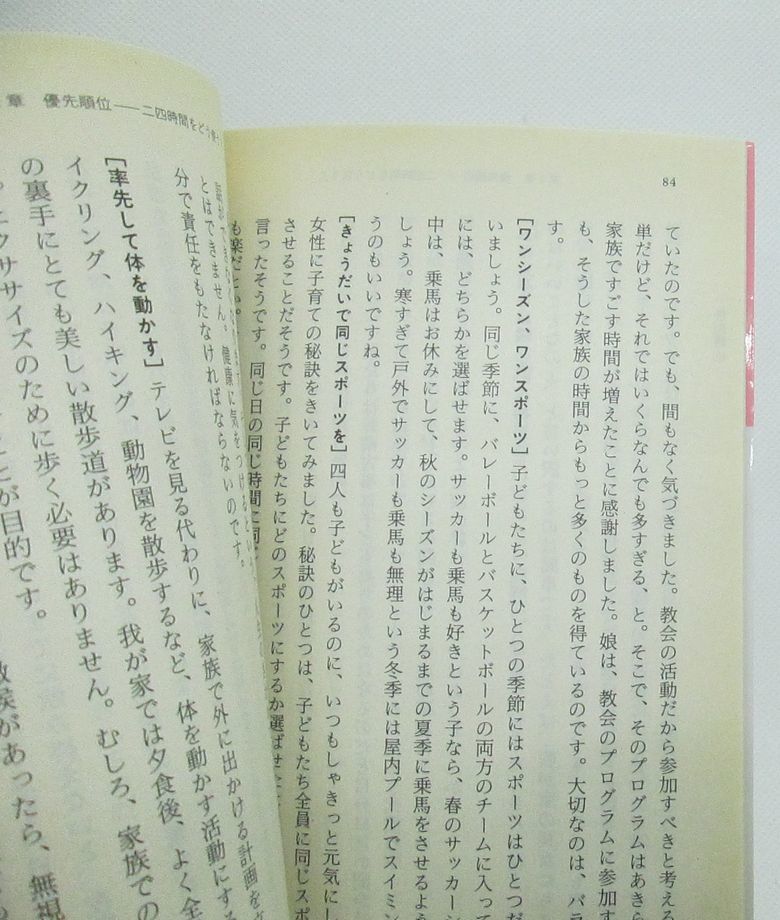 84
ていたのです。でも、間もなく気づきました。教会の活動だから参加すべきと考える
単だけど、それではいくらなんでも多すぎる、と。そこで、そのプログラムはあきら
家族ですごす時間が増えたことに感謝しました。娘は、教会のプログラムに参加す
も、そうした家族の時間からもっと多くのものを得ているのです。大切なのは、バラ
す。
[ワンシーズン、ワンスポーツ] 子どもたちに、ひとつの季節にはスポーツはひとつだ
いましょう。同じ季節に、バレーボールとバスケットボールの両方のチームに入って
には、どちらかを選ばせます。サッカーも乗馬も好きという子なら、春のサッカーシ
中は、乗馬はお休みにして、秋のシーズンがはじまるまでの夏季に乗馬をさせるよう
しょう。寒すぎて戸外でサッカーも乗馬も無理という冬季には屋内プールでスイミン
うのもいいですね。
[きょうだいで同じスポーツを] 四人も子どもがいるのに、いつもしゃきっと元気にし
女性に子育ての秘訣をきいてみました。秘訣のひとつは、子どもたち全員に同じスポ
させることだそうです。子どもたちにどのスポーツにするか選ばせた
言ったそうです。同じ日の同じ時間に同じ
も楽だ
章 優先順位――二四時間をどう使う
とはできません。健康に気をつける
分で責任をもたなければならないのです。
[率先して体を動かす] テレビを見る代わりに、家族で外に出かける計画を
イクリング、ハイキング、動物園を散歩するなど、体を動かす活動にする
の裏手にとても美しい散歩道があります。我が家では夕食後、よく全
エクササイズのために歩く必要はありません。むしろ、家族での
とが目的です。
候があったら、無視